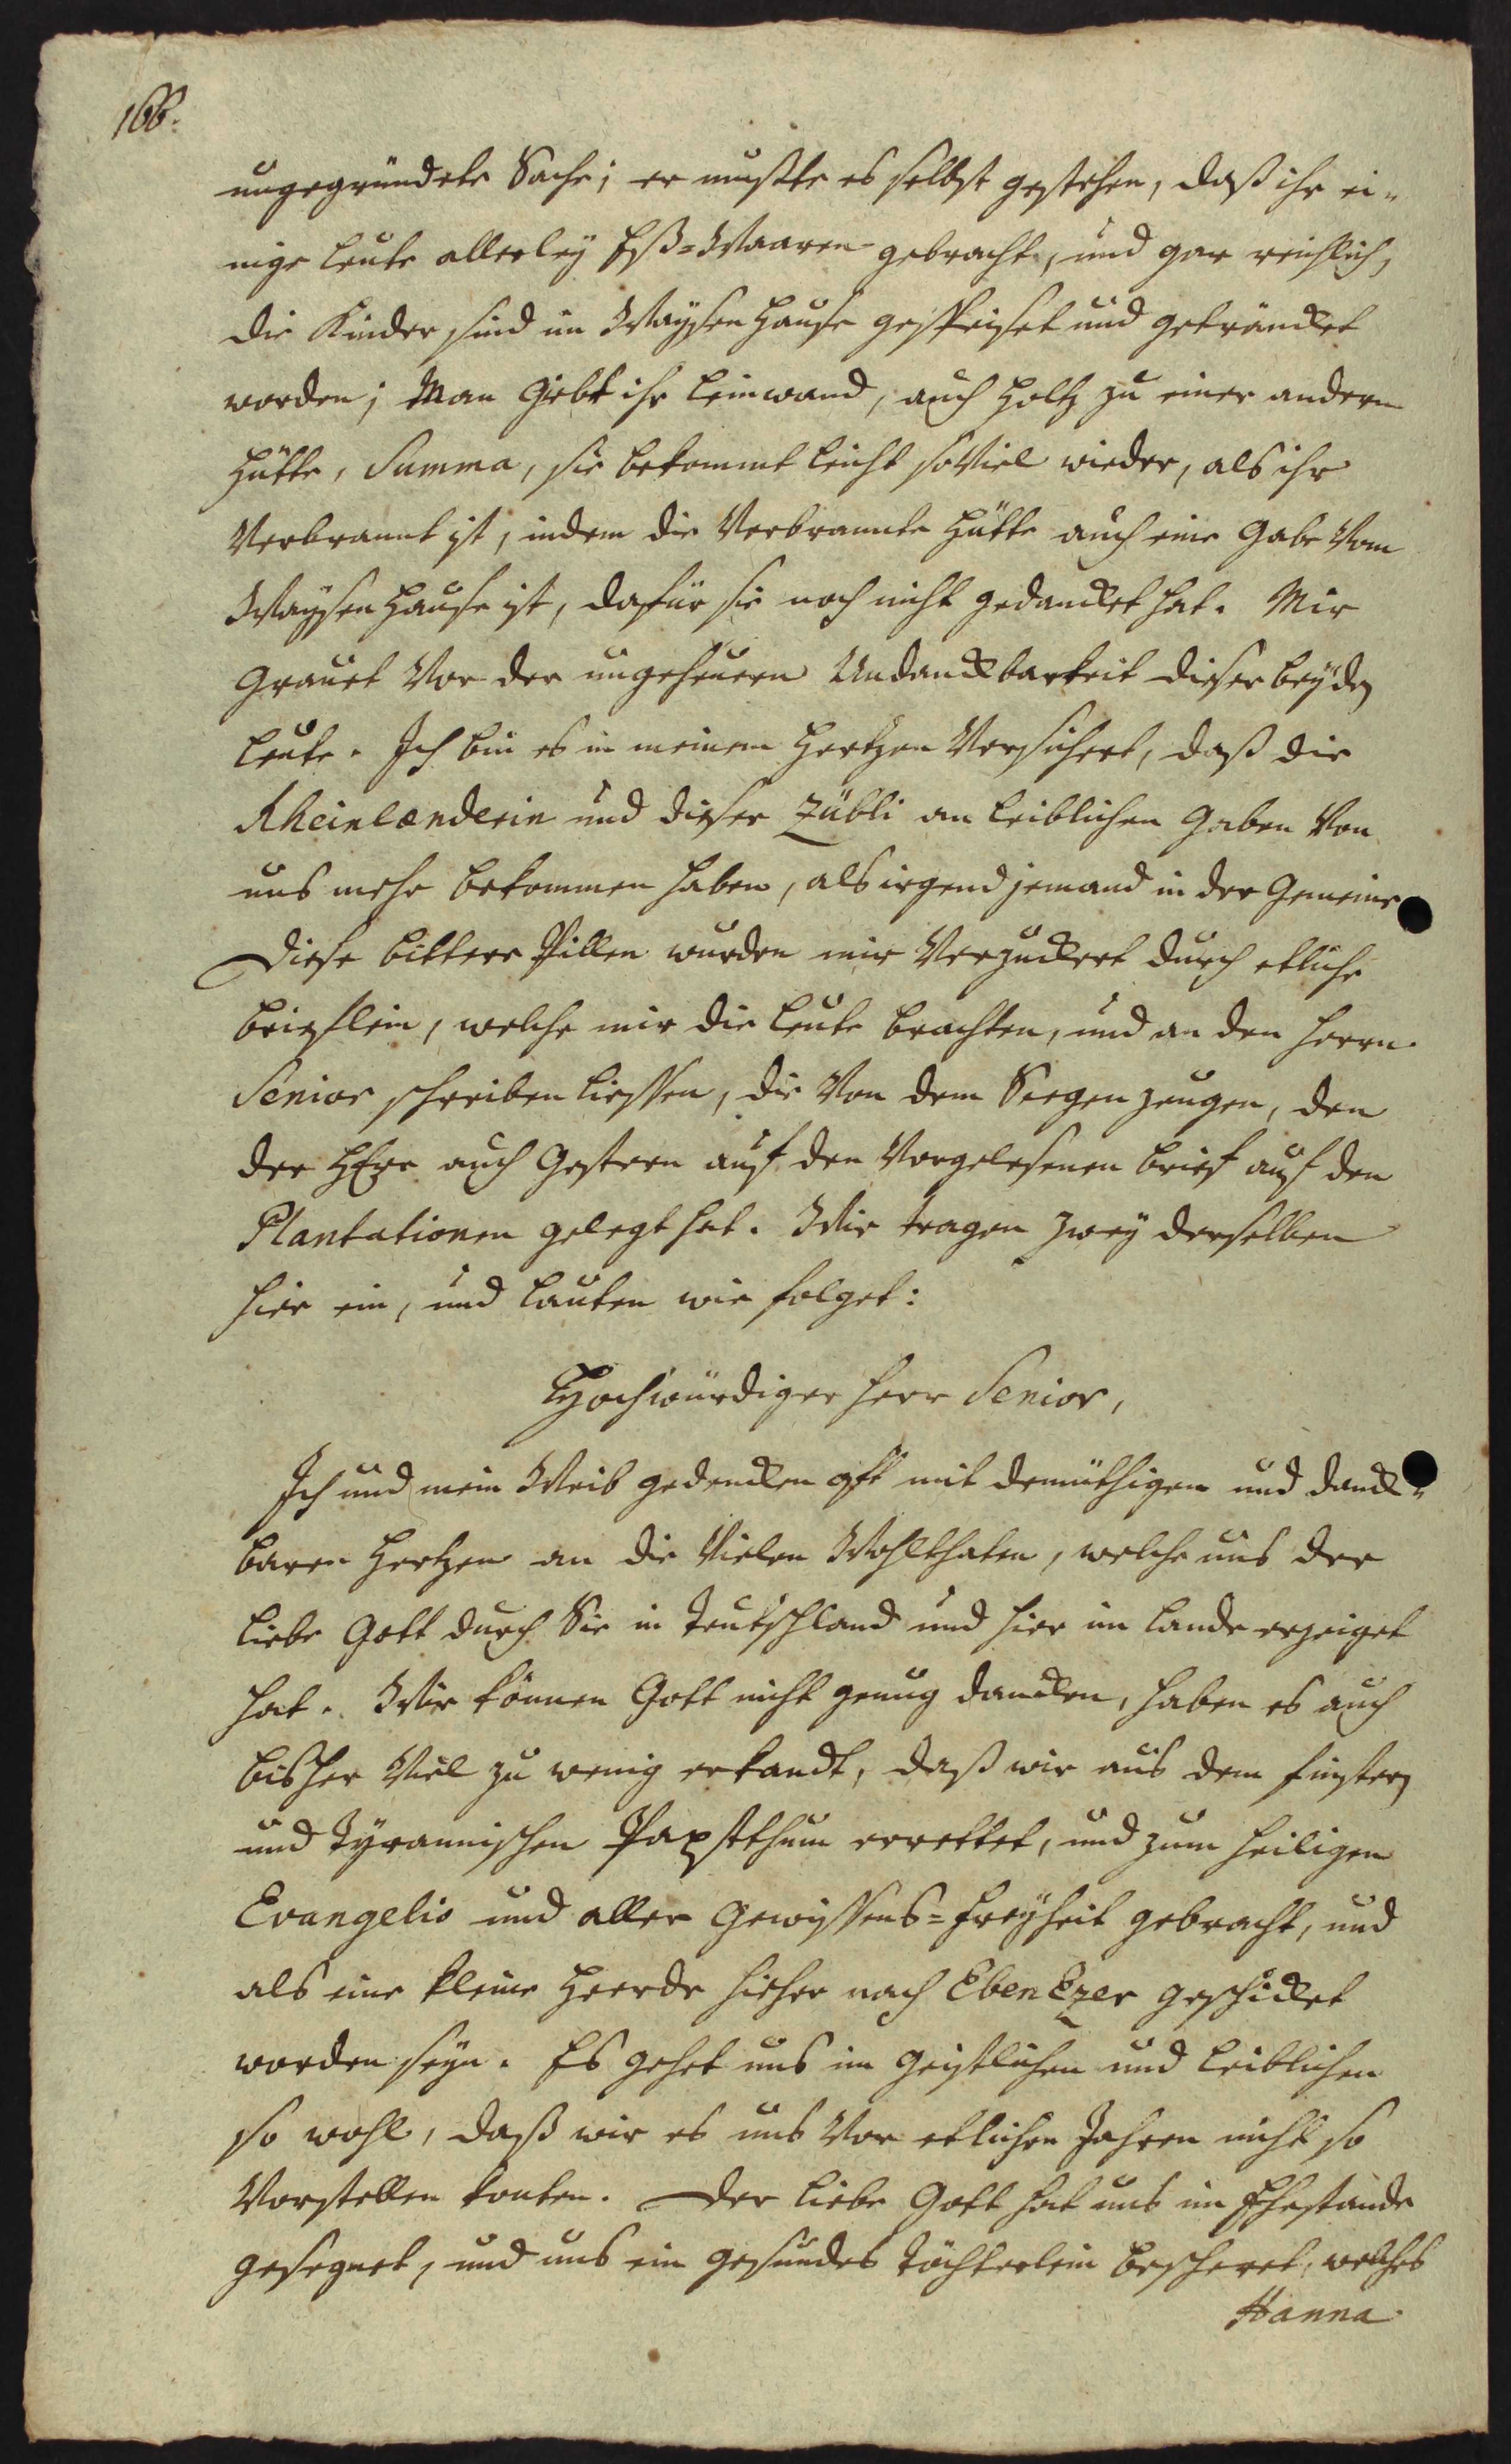 166.
ungegründete Sache; er mußte es selbst gestehen, daß ihr ei-
nige Leute allerley Eß-Waaren gebracht, und gar reichlich,
die Kinder sind im Waysenhause gespeiset und geträncket
worden; Man giebt ihr Leinwand, auch Holtz zu einer andern
Hütte, Summa, sie bekommt leicht soviel wieder, als ihr
verbrannt ist, indem die verbrannte Hütte auch eine Gabe vom
Waysenhause ist, dafür sie noch nicht gedancket hat. Mir
grauet vor der ungeheuern Undanckbarkeit dieser beyden
Leute. Ich bin es in meinem Hertzen versichert, daß die
Rheinlænderin und dieser Zübli an leiblichen Gaben von
uns mehr bekommen haben, als irgend jemand in der Gemeine
Diese bittere Pillen wurden mir verzuckert durch etliche
Brieflein, welche mir die Leute brachten, und an den Herrn
Senior schreiben liessen, die von dem Seegen zeugen, den
der HErr auch gestern auf den vorgelesenen Brief auf den
Plantationen gelegt hat. Wir tragen zwey derselben
hier ein, und lauten wie folget:
Hochwürdiger Herr Senior,
Ich und mein Weib gedencken oft mit demüthigen und danck-
baren Hertzen an die vielen Wohlthaten, welche uns der
liebe Gott durch Sie in Teutschland und hier im Lande erzeiget
hat. Wir können Gott nicht genug dancken, haben es auch
bisher viel zu wenig erkandt, daß wir aus dem finstern
und Tyrannischen Papstthum errettet, und zum heiligen
Evangelio und aller Gewissens-Freyheit gebracht, und
als eine kleine Heerde hieher nach EbenEzer geschicket
worden seyn. Es gehet uns im geistlichen und leiblichen
so wohl, daß wir es uns vor etlichen Jahren nicht so
vorstellen konten. Der liebe Gott hat uns im Ehestande
gesegnet, und uns ein gesundes Töchterlein bescheret, welches
Hanna